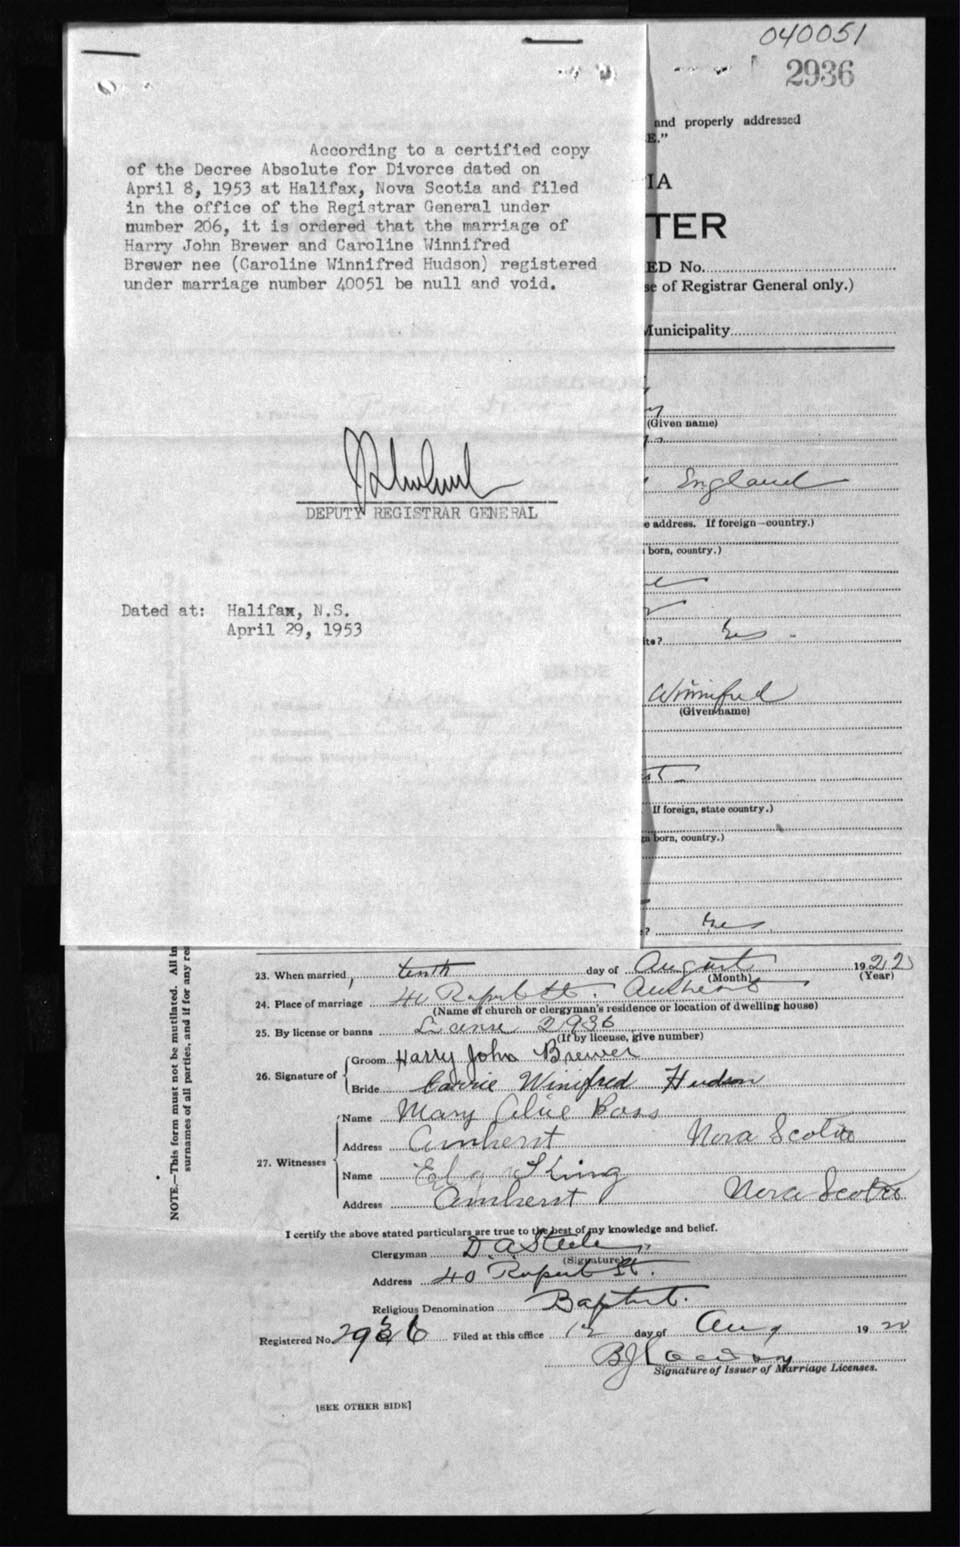 040051
2936
and properly addressed
E."
IA
TER
ED No.
se of Registrar General only.)
Municipality
According to a certified copy
of the Decree Absolute for Divorce dated on
April 8, 1953 at Halifax, Nova Scotia and filed
in the office of the Registrar General under
number 206, it is ordered that the marriage of
Harry John Brewer and Caroline Winnifred
Brewer nee (Caroline Winnifred Hudson) registered
under marriage number 40051 be null and void.
DEPUTY REGISTRAR GENERAL
Dated at: Halifax, N.S.
April 29, 1953
(Given name)
England
e address. If foreign—country.)
born, country.)
ite? Yes
Winnifred
(Given name)
If foreign, state country.)
gn born, country.)
? Yes
23. When married, tenth day of August 1922
(Month) (Year)
24. Place of marriage 40 Rupert St. Amherst
(Name of church or clergyman's residence or location of dwelling house)
25. By license or banns License 2936
(If by license, give number)
26. Signature of Groom Harry John Brewer
Bride Carrie Winifred Hudson
27. Witnesses
Name Mary Alice Ross
Address Amherst Nova Scotia
Name King
Address Amherst Nova Scotia
I certify the above stated particulars are true to the best of my knowledge and belief.
Clergyman D A Steele
(Signature)
Address 40 Rupert St.
Religious Denomination Baptist.
Registered No. 2936 Filed at this office 12 day of Aug 1922
Signature of Issuer of Marriage Licenses.
[SEE OTHER SIDE]
NOTE.—This form must not be mutilated. All in
surnames of all parties, and if for any res